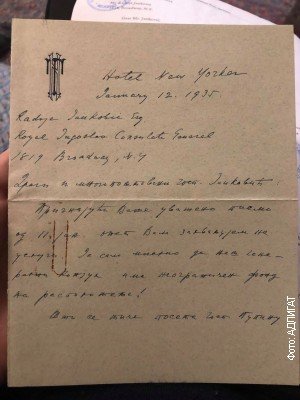 Hotel New Yorker
January 12. 1935.
Radoye Jankovic Esq
Royal Jugoslav Consulate General
1819 Broadway, N.Y
Драги и многопоштовани госп. Јанковићу:
Примајући Ваше уважено писмо
од 11. јан. опет Вам захваљујем на
услуги. Ја сам мислио да наш гене-
рални конзул има неограничен фонд
на расположењу!
Што се тиче посета госп Пупину
Фото: АДЛИГАТ